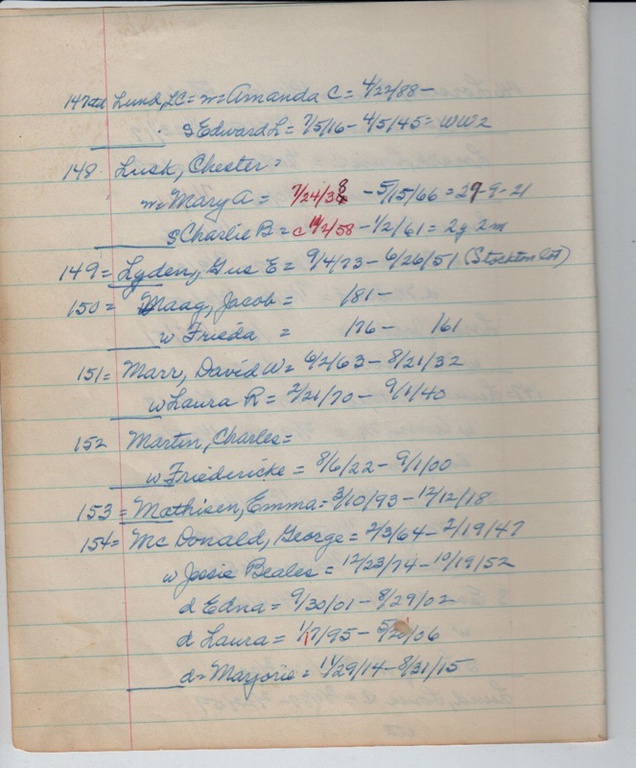 147 Lund, LC = w = Amanda C = 4/22/88 -
s Edward L = 7/5/16 - 4/5/45 = WW2
148 Lusk, Chester =
w = Mary A = 7/24/38 - 5/15/66 = 27-9-21
s Charlie B = c 11/2/58 - 1/2/61 = 2y 2m
149 = Lyden, Gus E = 9/4/73 - 6/26/51 (Stockton Cot)
150 = Maag, Jacob = /81 -
w Frieda = /76 - /61
151 = Marr, David W = 6/2/63 - 8/21/32
w Laura R = 2/21/70 - 9/1/40
152 Martin, Charles =
w Friedericke = 8/6/22 - 9/1/00
153 = Mathisen, Emma = 3/10/93 - 12/12/18
154 = McDonald, George = 2/3/64 - 2/19/47
w Jossie Beales = 12/23/74 - 10/19/52
d Edna = 9/30/01 - 8/29/02
d Laura = 1/7/95 - 5/20/06
d = Marjorie = 11/29/14 - 8/31/15